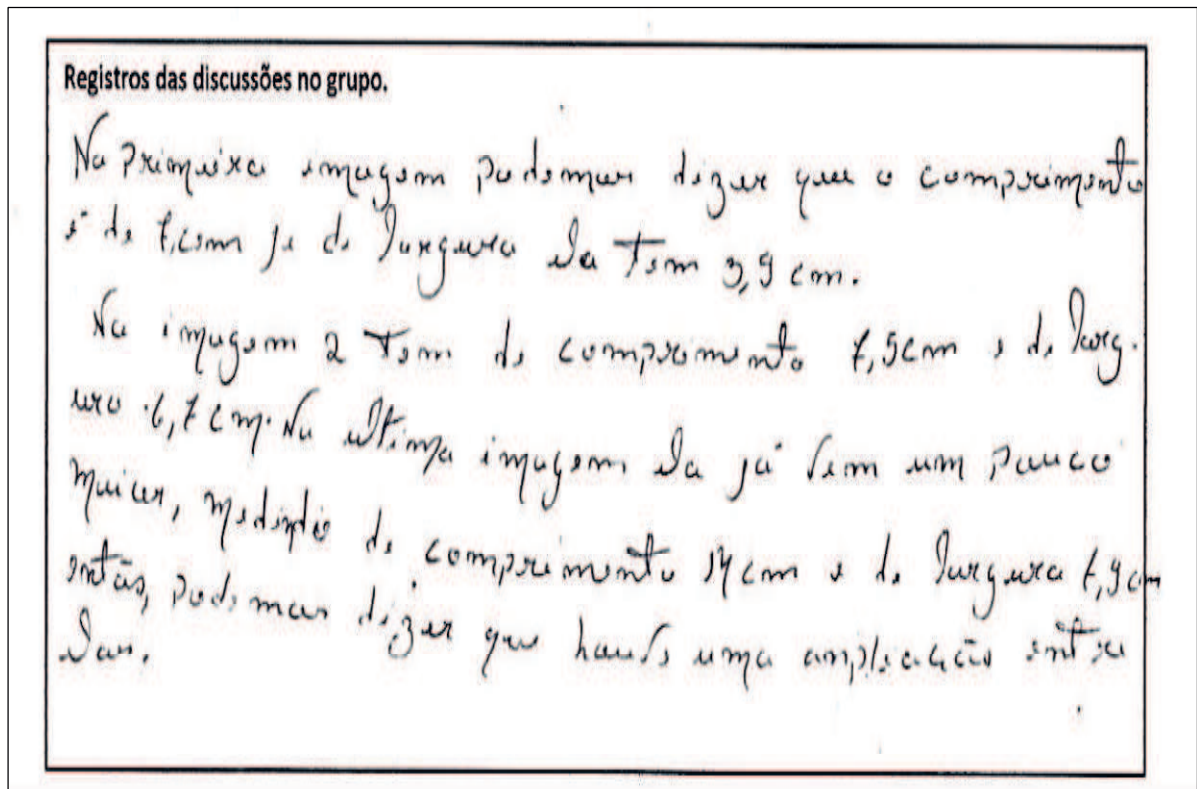 Registros das discussões no grupo.
Na Primeira imagem podemos dizer que o comprimento
é de 7,cm já de largura ela Tem 3,9 cm.
Na imagem 2 Tem de comprimento 7,9cm e de larg-
ura 6,7 cm. Na ultima imagem ela já vem um pouco
maior, medindo de comprimento 14 cm e de largura 7,9 cm
então, podemos dizer que houve uma ampliação entre
elas.